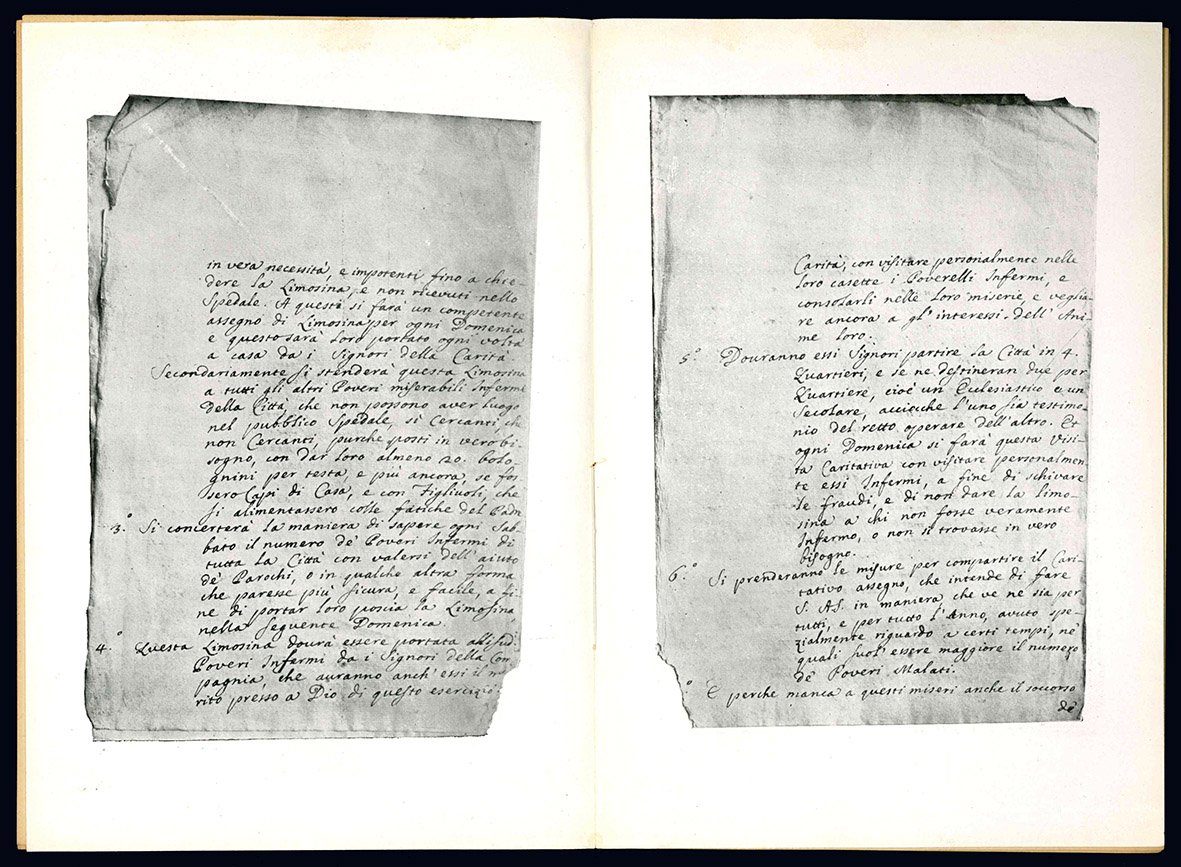 in vera necessità, e impotenti fino a chie-
dere la Limosina, e non ricevuti nello
Spedale. A questi si farà un competente
assegno di Limosina per ogni Domenica
e questo sarà loro portato ogni volta
a casa da i Signori della Carità.
Secondariamente si stenderà questa Limosina
a tutti gli altri Poveri miserabili Infermi
della Città, che non possono aver luogo
nel pubblico Spedale, sì Cercanti, che
non Cercanti, purche posti in vero bi-
sogno, con dar loro almeno 20. bolo-
gnini per testa, e più ancora, se fos-
sero Capi di Casa, e con Figliuoli, che
si alimentassero colle fatiche del Padr
3.° Si concerterà la maniera di sapere ogni Sab-
bato il numero de' Poveri Infermi di
tutta la Città con valersi dell' aiuto
de' Parochi, o in qualche altra forma
che paresse più sicura, e facile, a fi-
ne di portar loro poscia la Limosina
nella seguente Domenica.
4.° Questa Limosina dourà essere portata alli sud.
Poveri Infermi da i Signori della Com
pagnia, che auranno anch' essi il m
rito presso a Dio di questo esercizio
Carità, con visitare personalmente nelle
loro casette i Poverelli Infermi, e
consolarli nelle loro miserie, e veglia-
re ancora a gl' interessi dell' Ani-
me loro.
5.° Douranno essi Signori partire la Città in 4.
Quartieri, e se ne destineran due per
Quartiere, cioè un Eclesiastico e un
Secolare, acciocche l'uno sia testimo-
nio del retto operare dell'altro. Et
ogni Domenica si farà questa Visi-
ta Caritativa con visitare personalmen-
te essi Infermi, a fine di schivare
le fraudi, e di non dare la limo-
sina a chi non fosse veramente
Infermo, o non si trovasse in vero
bisogno.
6.° Si prenderanno le misure per compartire il Cari-
tativo assegno, che intende di fare
S. AS. in maniera che ve ne sia per
tutti, e per tutto l'Anno, avuto spe-
zialmente riguardo a certi tempi, ne'
quali suol' essere maggiore il numero
de' Poveri Malati.
° E perche manca a questi miseri anche il soccorso
de'